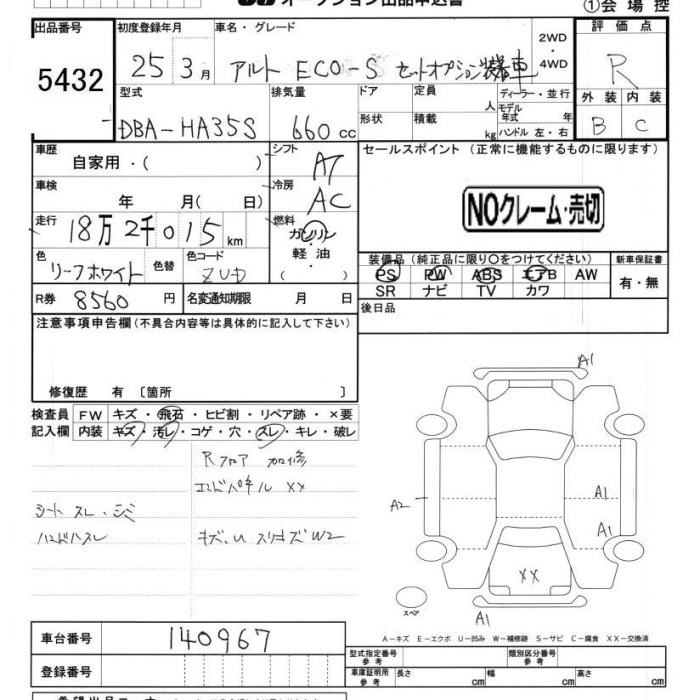 オークション出品申込書
①会場控
出品番号 初度登録年月 車名・グレード 2WD・4WD 評価点
5432 25 3月 アルト ECO-S セットオプション装着車 R
型式 排気量 ドア 定員 人 ディーラー・並行 外装 内装
DBA-HA35S 660cc 形状 積載 kg モデル年式 年 ハンドル 左・右 B C
車歴 自家用・( ) シフト AT セールスポイント (正常に機能するものに限ります)
車検 年 月( 日) 冷房 AC
NOクレーム・売切
走行 18万2千015km 燃料 ガソリン・軽油・( )
色 リーフホワイト 色替 色コード ZUD
装備品(純正品に限り○をつけてください) 新車保証書
PS PW ABS エアB AW 有・無
SR ナビ TV カワ
R券 8560円 名変通知期限 月 日
後日品
注意事項申告欄(不具合内容等は具体的に記入して下さい)
修復歴 有 〔箇所 〕
検査員 FW キズ・飛石・ヒビ割・リペア跡・×要
記入欄 内装 キズ・汚レ・コゲ・穴・スレ・キレ・破レ
Rフロア 加修
エンドパネル XX
シート スレ・シミ
ハンドルスレ
キズ、U スリキズ W2
A1
A2
A1
A1
XX
スペア
A1
A-キズ E-エクボ U-凹み W-補修跡 S-サビ C-腐食 XX-交換済
車台番号 140967
型式指定番号 参考 類別区分番号 参考
登録番号
車庫証明用 参考 長さ cm 幅 cm 高さ cm